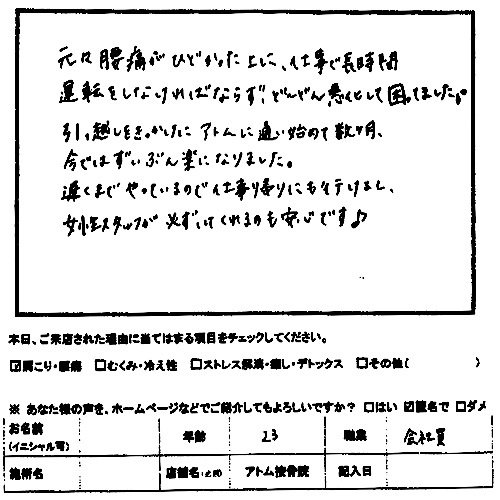 元々腰痛がひどかった上に、仕事で長時間
運転をしなければならず、どんどん悪化して困ってました。
引っ越しをきっかけにアトムに通い始めて数ヶ月、
今ではずいぶん楽になりました。
遅くまでやっているので仕事帰りにも行けますし、
女性スタッフが必ずいてくれるのも安心です♪
本日、ご来店された理由に当てはまる項目をチェックしてください。
☑肩こり・腰痛 □むくみ・冷え性 □ストレス解消・癒し・デトックス □その他( )
※ あなた様の声を、ホームページなどでご紹介してもよろしいですか? □はい ☑匿名で □ダメ
お名前 (イニシャル可) 年齢 23 職業 会社員
施術名 店舗名 アトム接骨院 記入日